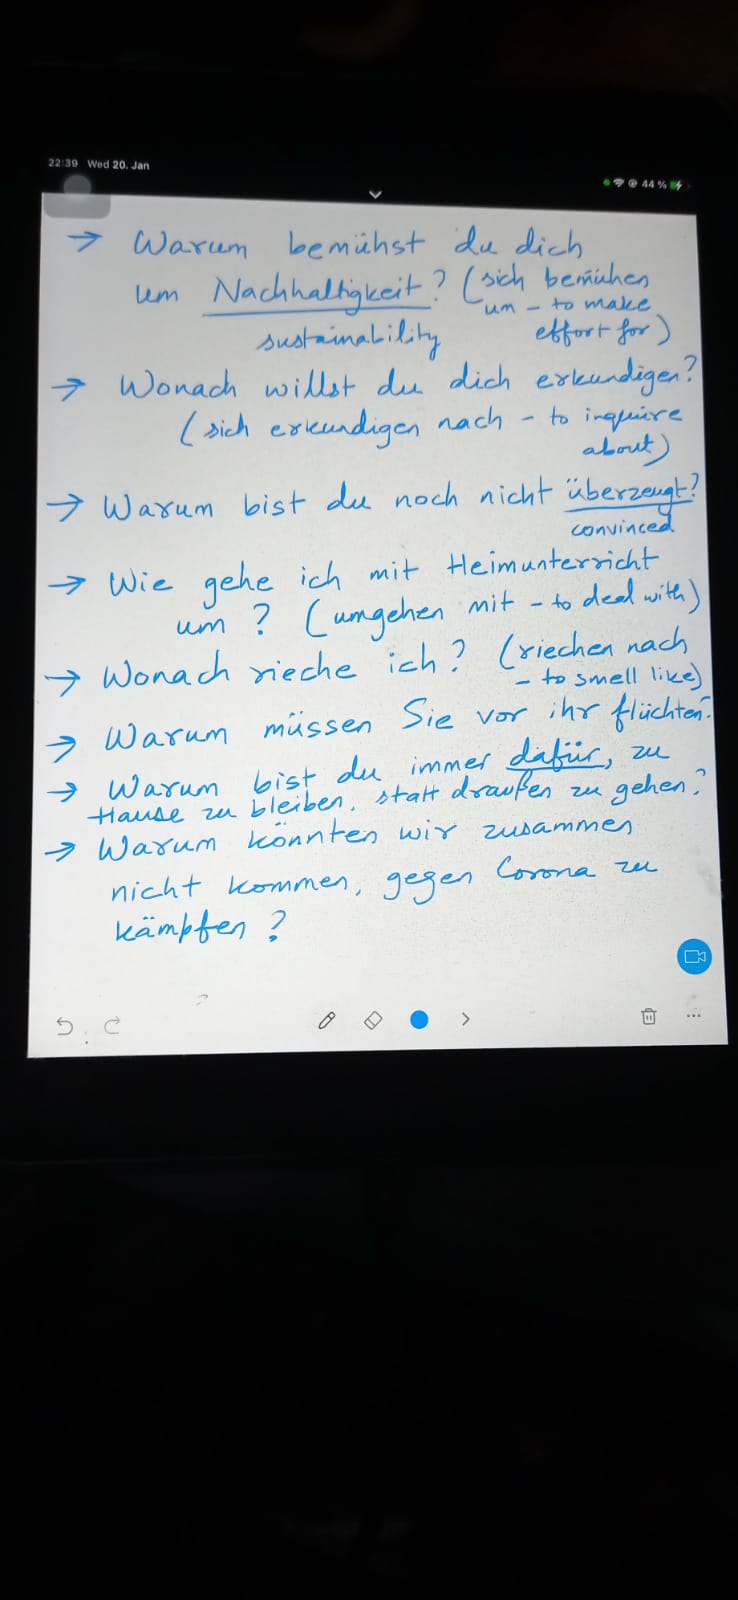 22:39 Wed 20. Jan
44 %
→ Warum bemühst du dich
um Nachhaltigkeit? (sich bemühen
um - to make
sustainability effort for)
→ Wonach willst du dich erkundigen?
(sich erkundigen nach - to inquire
about)
→ Warum bist du noch nicht überzeugt?
convinced
→ Wie gehe ich mit Heimunterricht
um? (umgehen mit - to deal with)
→ Wonach rieche ich? (riechen nach
- to smell like)
→ Warum müssen Sie vor ihr flüchten?
→ Warum bist du immer dafür, zu
Hause zu bleiben, statt draußen zu gehen?
→ Warum könnten wir zusammen
nicht kommen, gegen Corona zu
kämpfen?